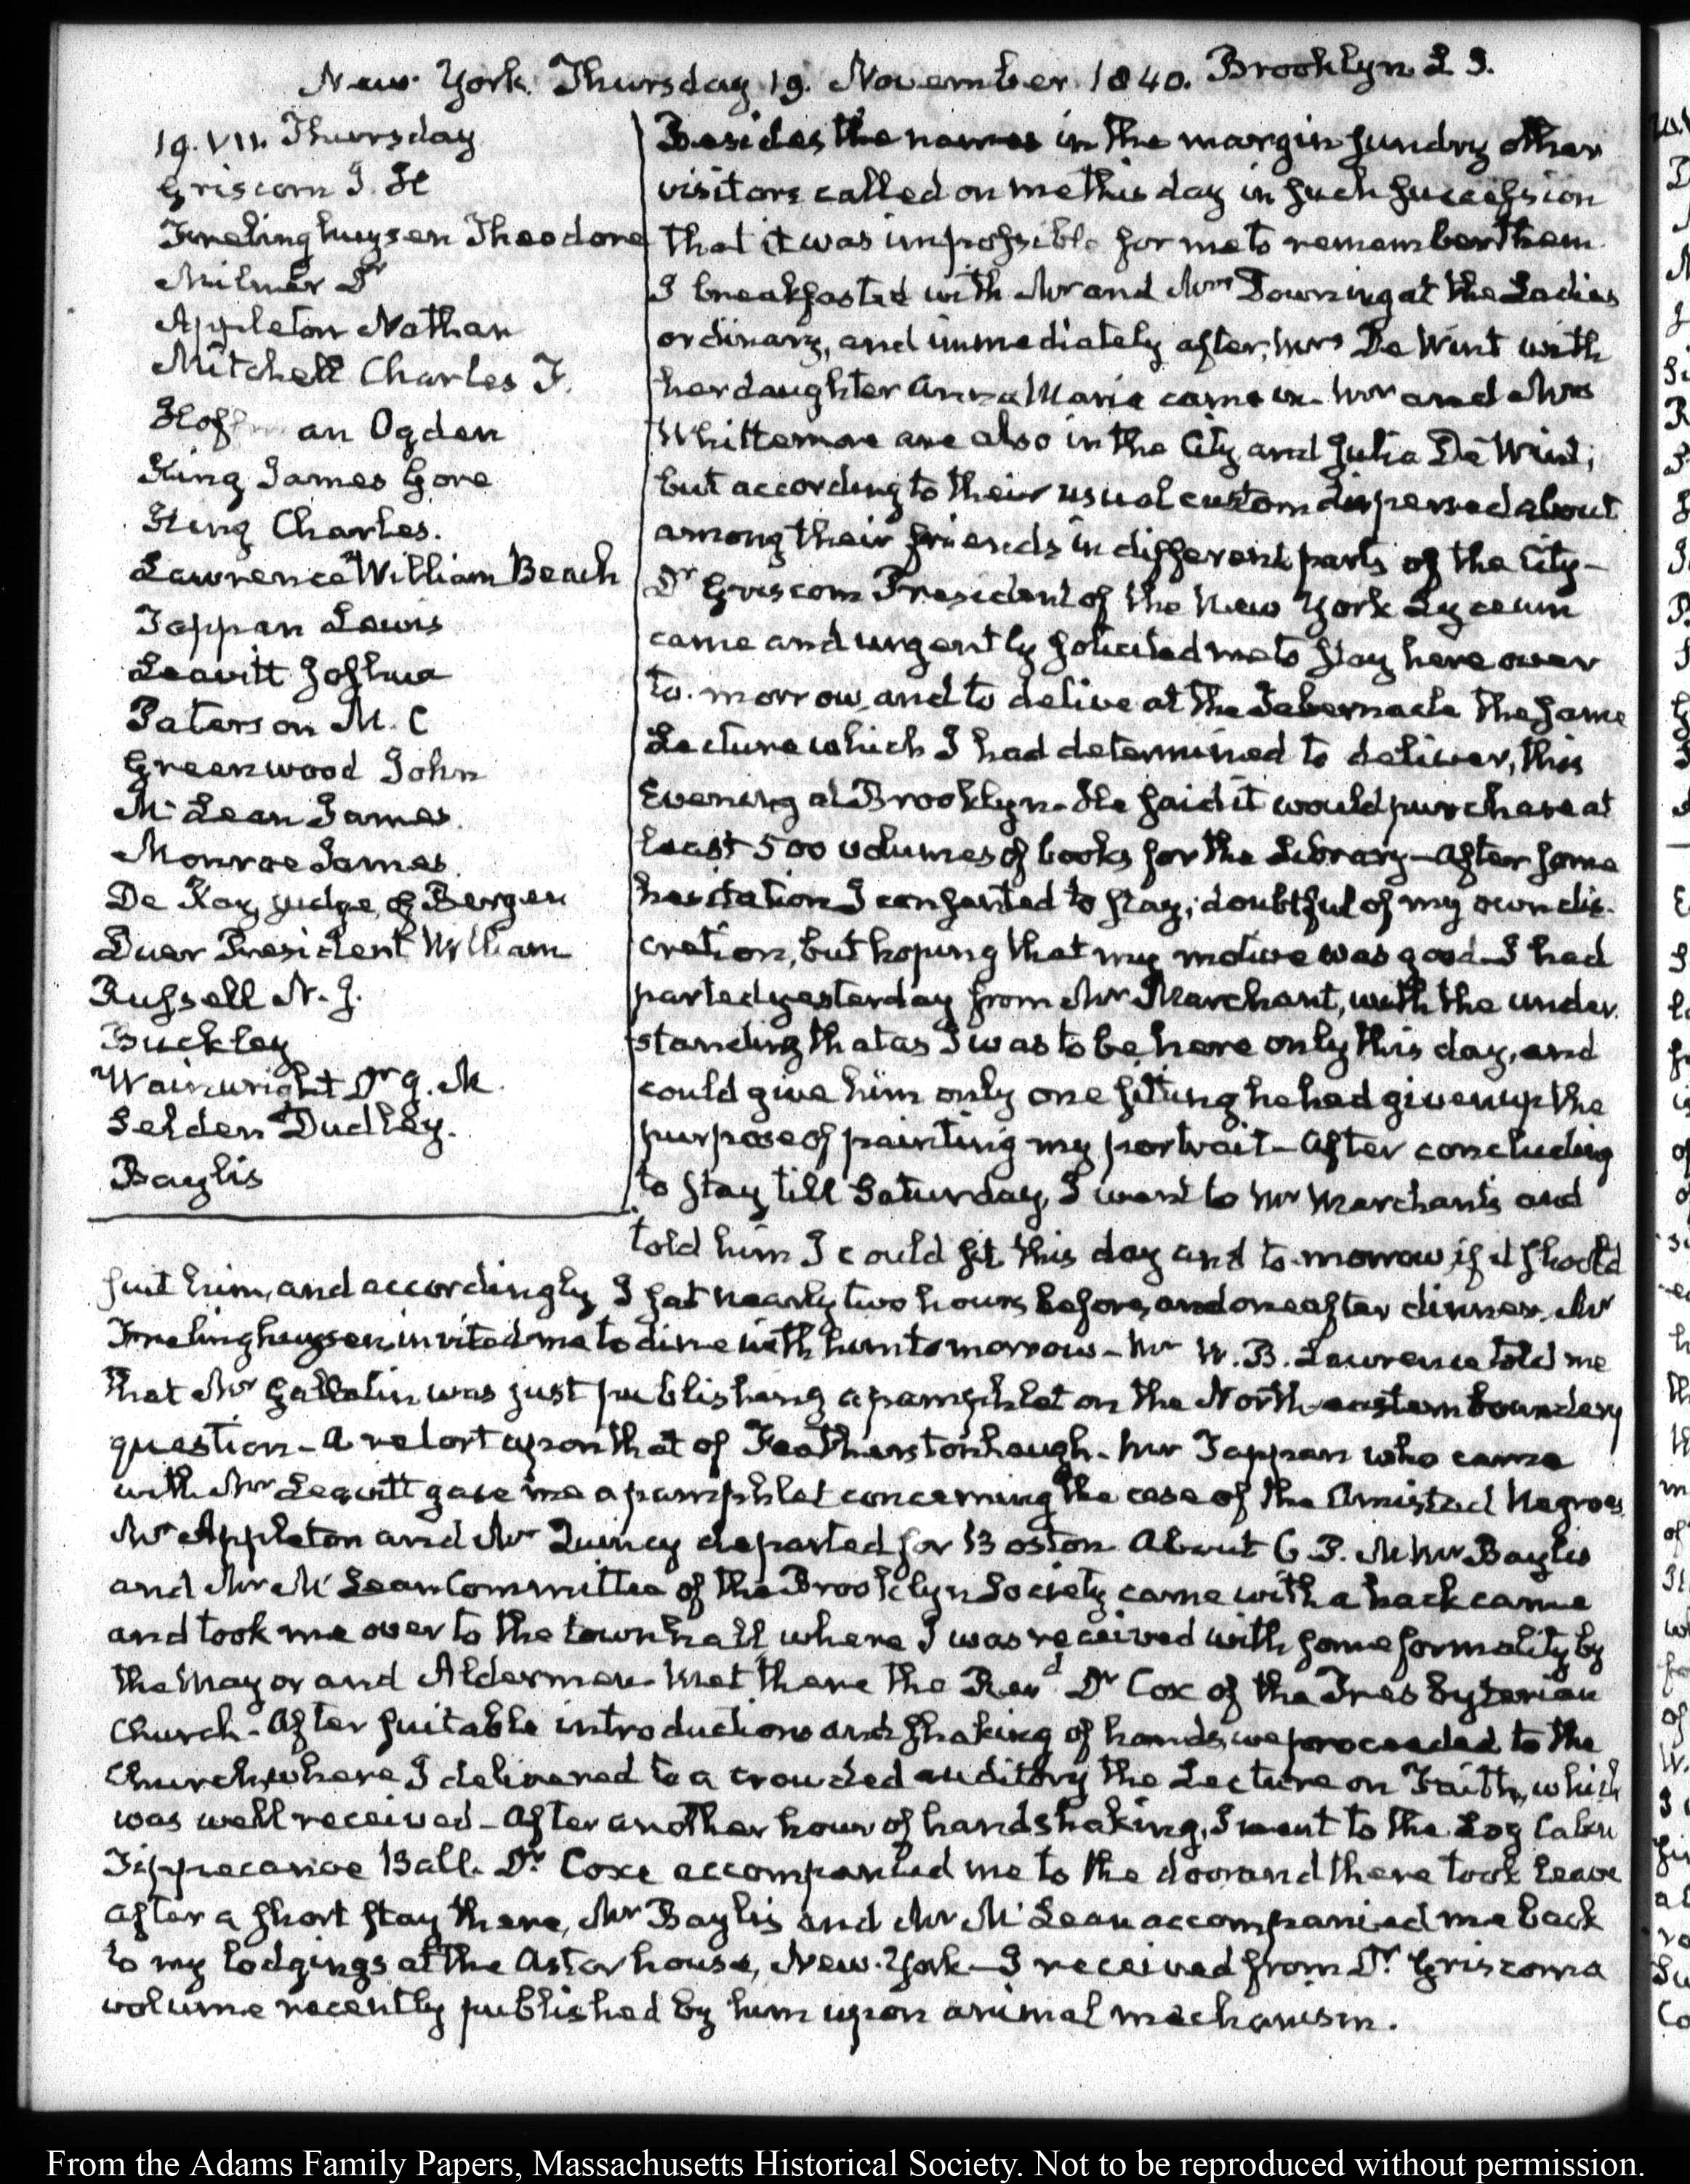 New York Thursday 19. November 1840. Brooklyn L I.
19. VII. Thursday
Griscom J. H
Frelinghuysen Theodore
Milner Dr
Appleton Nathan
Mitchell Charles F.
Hoffman Ogden
King James Gore
King Charles.
Lawrence William Beach
Tappan Lewis
Leavitt Joshua
Paterson M. C
Greenwood John
McLean James.
Monroe James.
De Kay, judge, of Bergen
Duer President William
Russell N. J.
Buckley
Wainwright Dr J. M.
Selden Dudley.
Baylis
Besides the names in the margin sundry other
visitors called on me this day in such succession
that it was impossible for me to remember them.
I breakfasted with Mr and Mrs Downing at the Ladies
ordinary, and immediately after, Mrs De Wint with
her daughter Anna Maria came in. Mr and Mrs
Whittemore are also in the City and Julia De Wint;
but according to their usual custom dispersed about
among their friends in different parts of the City—
Dr Griscom President of the New York Lyceum
came and urgently solicited me to stay here over
to-morrow, and to delive at the Tabernacle the same
Lecture which I had determined to deliver, this
Evening at Brooklyn. He said it would purchase at
least 500 volumes of books for the Library—After some
hesitation I consented to stay; doubtful of my own dis-
cretion, but hoping that my motive was good. I had
parted yesterday from Mr Marchant, with the under
standing that as I was to be here only this day, and
could give him only one sitting he had given up the
purpose of painting my portrait—After concluding
to stay till Saturday, I went to Mr Marchant's and
told him I could sit this day and to-morrow, if it should
suit him, and accordingly I sat nearly two hours before, and one after dinner. Mr
Frelinghuysen, invited me to dine with him to morrow—Mr W. B. Lawrence told me
that Mr Gallatin was just publishing a pamphlet on the North-eastern boundary
question—A retort upon that of Featherstonhaugh. Mr Tappan who came
with Mr Leavitt gave me a pamphlet concerning the case of the Amistad Negroes.
Mr Appleton and Mr Quincy departed for Boston. About 6 P. M. Mr Baylis
and Mr McLean Committee of the Brooklyn Society came with a hack came
and took me over to the town hall, where I was received with some formality by
the Mayor and Aldermen. Met there the Revd Dr Cox of the Presbyterian
Church—After suitable introductions and shaking of hands, we proceeded to the
Church, where I delivered to a crowded auditory the Lecture on Faith, which
was well received—After another hour of handshaking, I went to the Log Cabin
Tippecanoe Ball. Dr Coxe accompanied me to the door and there took leave
after a short stay there, Mr Baylis and Mr McLean accompanied me back
to my lodgings at the Astor house, New-York—I received from Dr Griscom a
volume recently published by him upon animal mechanism.
From the Adams Family Papers, Massachusetts Historical Society. Not to be reproduced without permission.